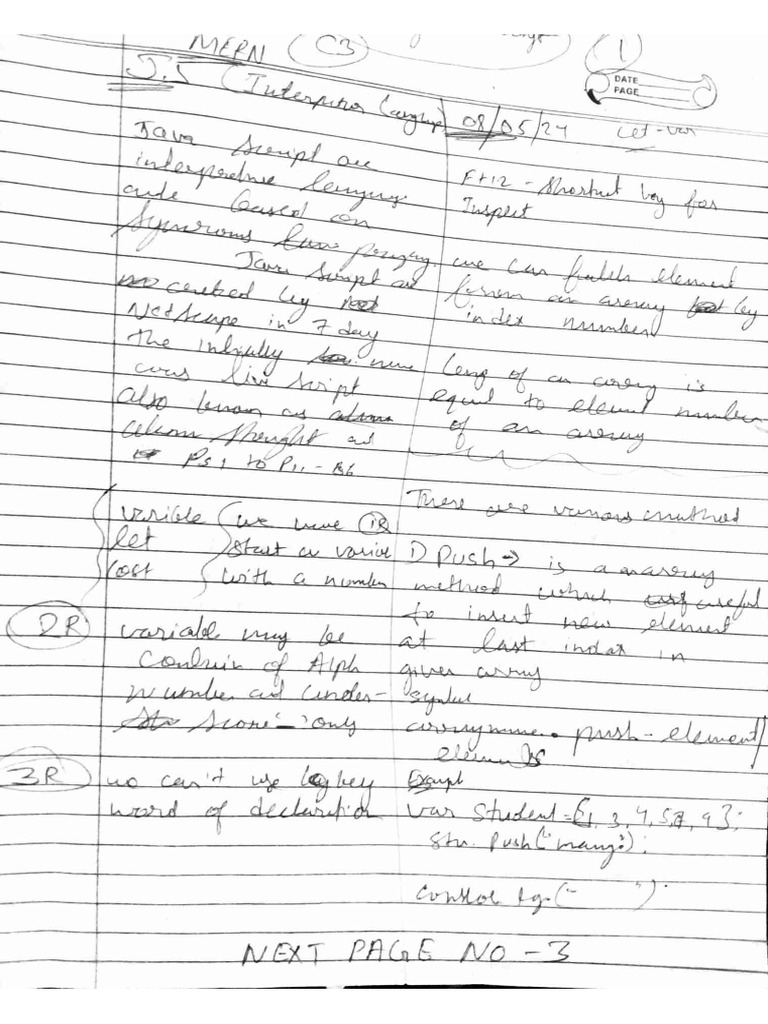 MERN C3 1
DATE
PAGE
J.S (Interpitor language) 08/05/24 Let-var
Java Script are
interpretive
code based on
Java Script are
created by
Netscape in 7 day
the initially name
was live script
also known as
as
PS1 to
variable
let
we have 1R
start a varible
with a number
2R variable may be
contain of Alph
number and under-
Score '_' only
3R no can't use key
word of declaration
F+12 - Shortcut key for
Inspect
we can fatch element
from an array by
index number
Leng of an array is
equal to element number
of an array
There are various mathod
1) Push → is a array
method which useful
to insert new element
at last index in
given array
Syntax
arrayname. push - element/
elements
Exampl
var Student = [1, 3, 4, 5, 7, 9];
Stu. Push("mang");
consol log(" ").
NEXT PAGE NO - 3